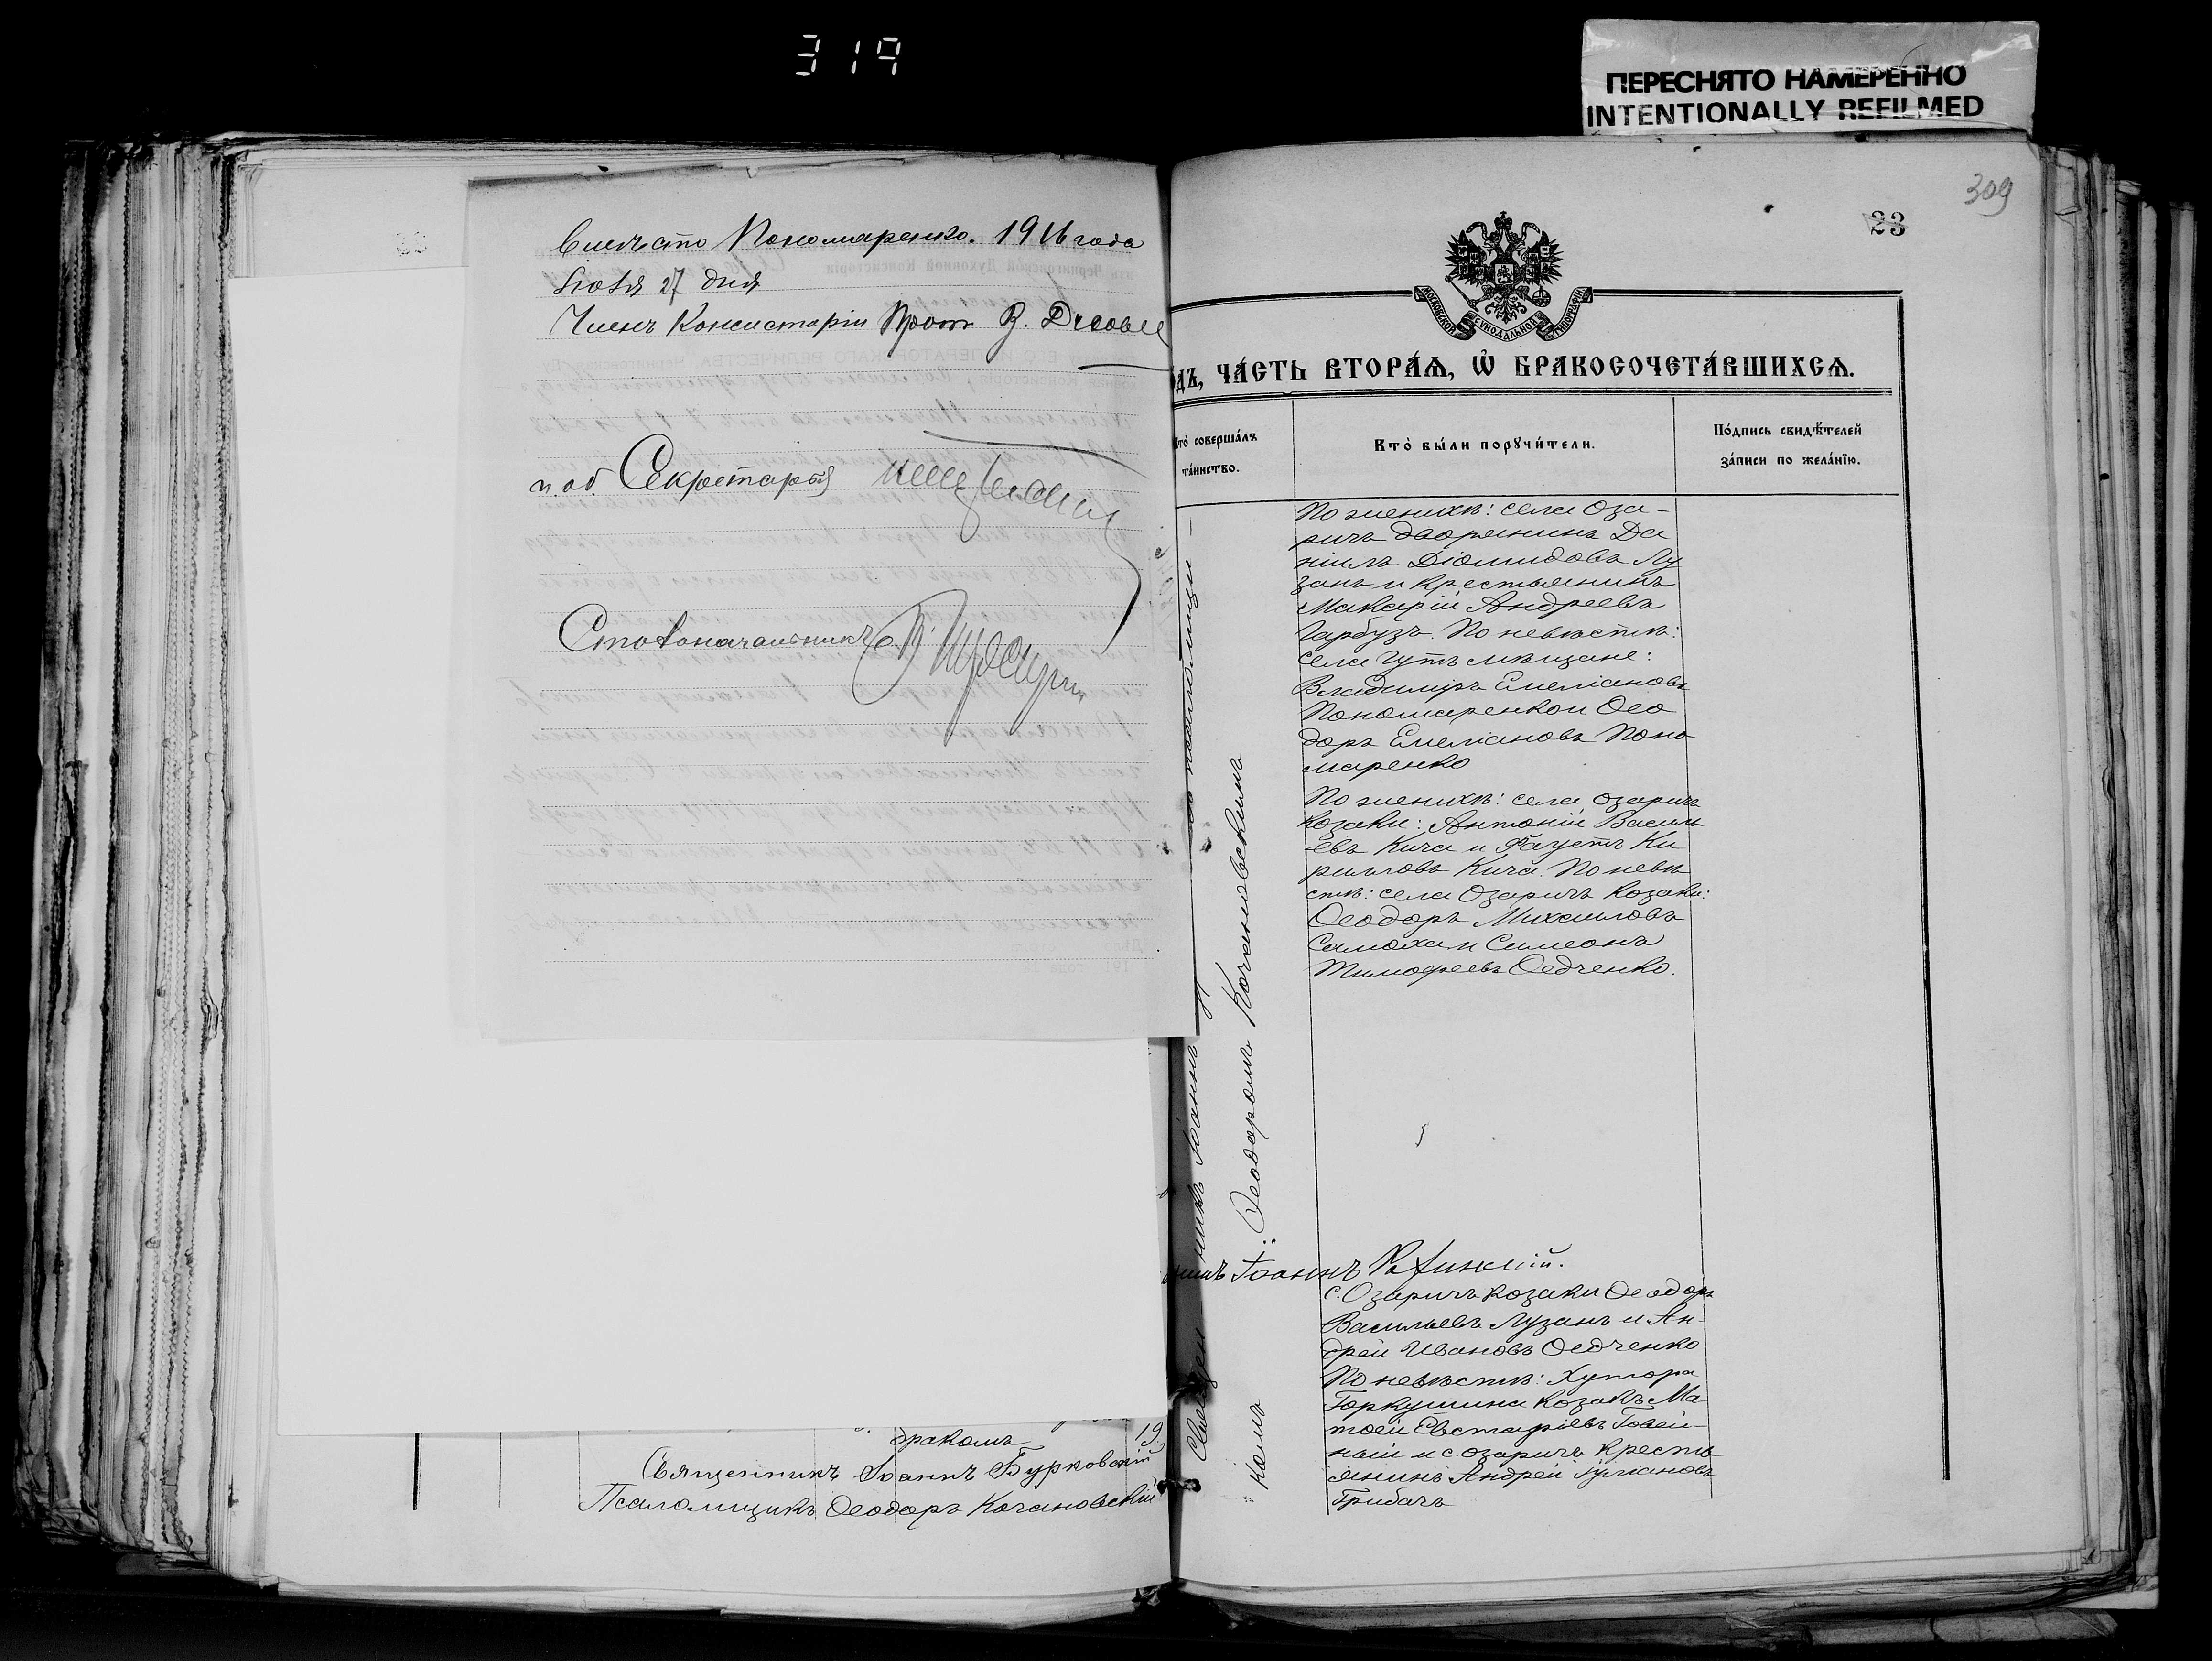 319
ПЕРЕСНЯТО НАМЕРЕННО
INTENTIONALLY REFILMED
309
23
вместо Пономаренко. 1916 года
Іюля 27 дня
Членъ Консисторіи Прот. В.
и. об. Секретаря
Столоначальникъ
бракомъ 19
Священникъ Іоаннъ Бурковскій
Псаломщикъ Ѳеодоръ Кочановскій
МОСКОВСКОЙ СѴНОДАЛЬНОЙ ТИПОГРАФІИ
ОДЪ, ЧА́СТЬ ВТОРА́Ѧ, Ѽ БРАКОСОЧЕТА́ВШИХСѦ.
Кто̀ соверша́лъ
та́инство.
Кто̀ бы́ли порꙋчи́тели.
По́дпись свидѣ́телей
за́писи по жела́нїю.
По женихѣ: села Оза-
ричъ дворянинъ Да
ніилъ Діомидовъ Лу
занъ и крестьянинъ
Макарій Андреевъ
Гарбузъ. По невѣстѣ:
села Гутъ мѣщане:
Владимиръ Емеліановъ
Пономаренко и Ѳео
доръ Емеліановъ Поно
маренко
По женихѣ: села Озаричъ
козаки: Антоній Василь
евъ Кича и Фаустъ Ки
рилловъ Кича. По невѣ
стѣ: села Озаричъ козаки:
Ѳеодоръ Михаиловъ
Самоха и Симеонъ
Тимофеевъ Ѳедченко.
Ѳеодоромъ Кочановскимъ
Іоаннъ
с. Озаричъ козаки Ѳеодоръ
Васильевъ Лузанъ и Ан-
дрей Ивановъ Ѳедченко
По невѣстѣ: Хутора
Горкушина козакъ Ма
тѳей Евстафіевъ Говей-
ный и с. Озаричъ кресть
янинъ Андрей Гуліановъ
Грибачъ